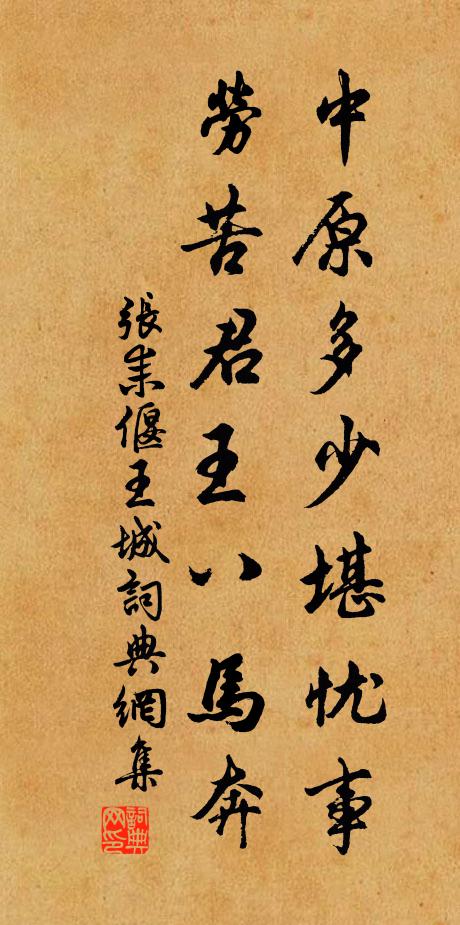 中原多少堪忧事
勞苦君王八馬奔
張耒偃王城詞典網集
詞典网印